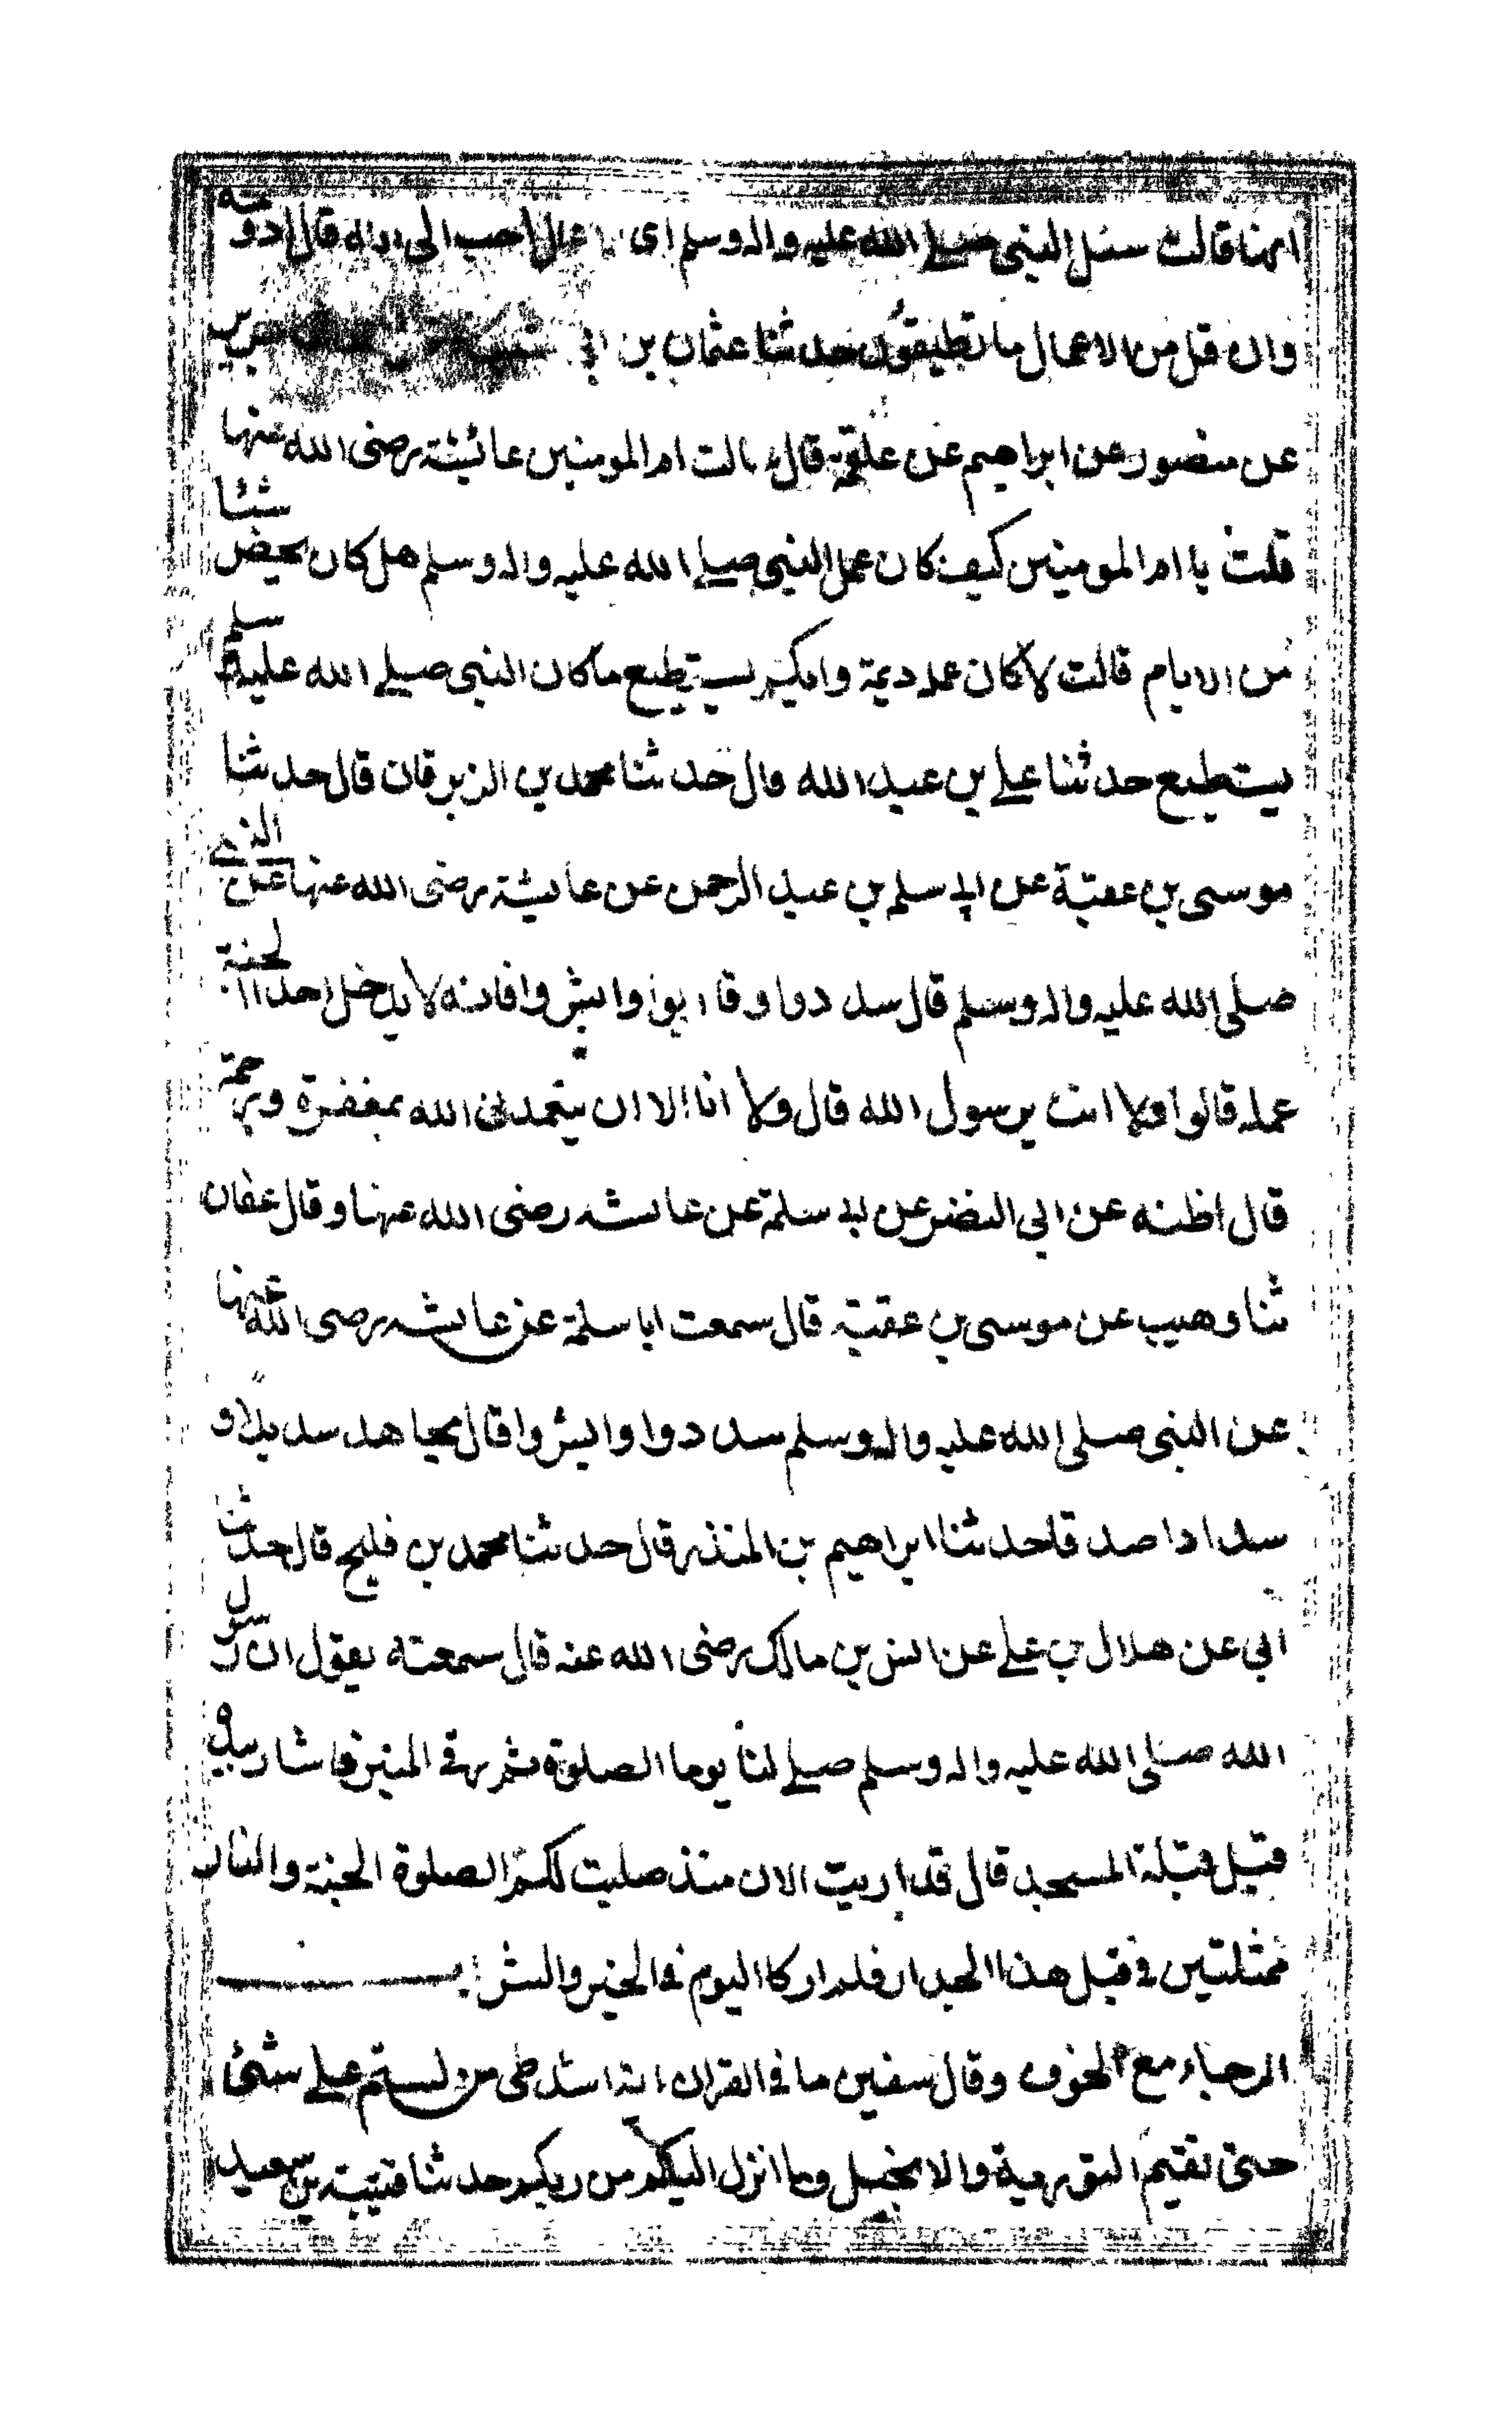 انها قالت سئل النبي صلى الله عليه واله وسلم اى الاعمال احب الى الله قال ادومه
وان قل من الاعمال ما تطيقون حدثنا عثمان بن ابي
عن منصور عن ابراهيم عن علقمة قال سالت ام المومنين عائشة رضى الله عنها
قلت يا ام المومنين كيف كان عمل النبي صلى الله عليه واله وسلم هل كان يخص شئا
من الايام قالت لا كان عمله ديمة وايكم يستطيع ما كان النبي صلى الله عليه وسلم
يستطيع حدثنا على بن عبد الله قال حدثنا محمد بن الزبرقان قال حدثنا
موسى بن عقبة عن ابى سلم بن عبد الرحمن عن عايشة رضى الله عنها عن النبى
صلى الله عليه واله وسلم قال سددوا وقاربوا وابشروا فانه لا يدخل احدا الجنة
عمله قالوا ولا انت يرسول الله قال ولا انا الا ان يتغمدنى الله بمغفرة ورحمة
قال اظنه عن ابى النضر عن ابى سلمة عن عايشه رضى الله عنها وقال عفان
ثنا وهيب عن موسى بن عقبة قال سمعت ابا سلمة عن عايشه رضى الله عنها
عن النبى صلى الله عليه واله وسلم سددوا وابشروا قال مجاهد سديدا و
سدادا صدقا حدثنا ابراهيم بن المنذر قال حدثنا محمد بن فليح قال حدثنا
ابي عن هلال بن على عن انس بن مالك رضى الله عنه قال سمعته يقول ان رسول
الله صلى الله عليه واله وسلم صلى لنا يوما الصلوة ثم رقى المنبر فاشار بيده
قبل قبلة المسجد قال قد اريت الان منذ صليت لكم الصلوة الجنة والنار
ممثلتين في قبل هذا الجدار فلم ار كاليوم في الخير والشر
الرجاء مع الخوف وقال سفين ما في القران اية اشد على من لستم على شئ
حتى تقيموا التورية والانجيل وما انزل اليكم من ربكم حدثنا قتيبة بن سعيد